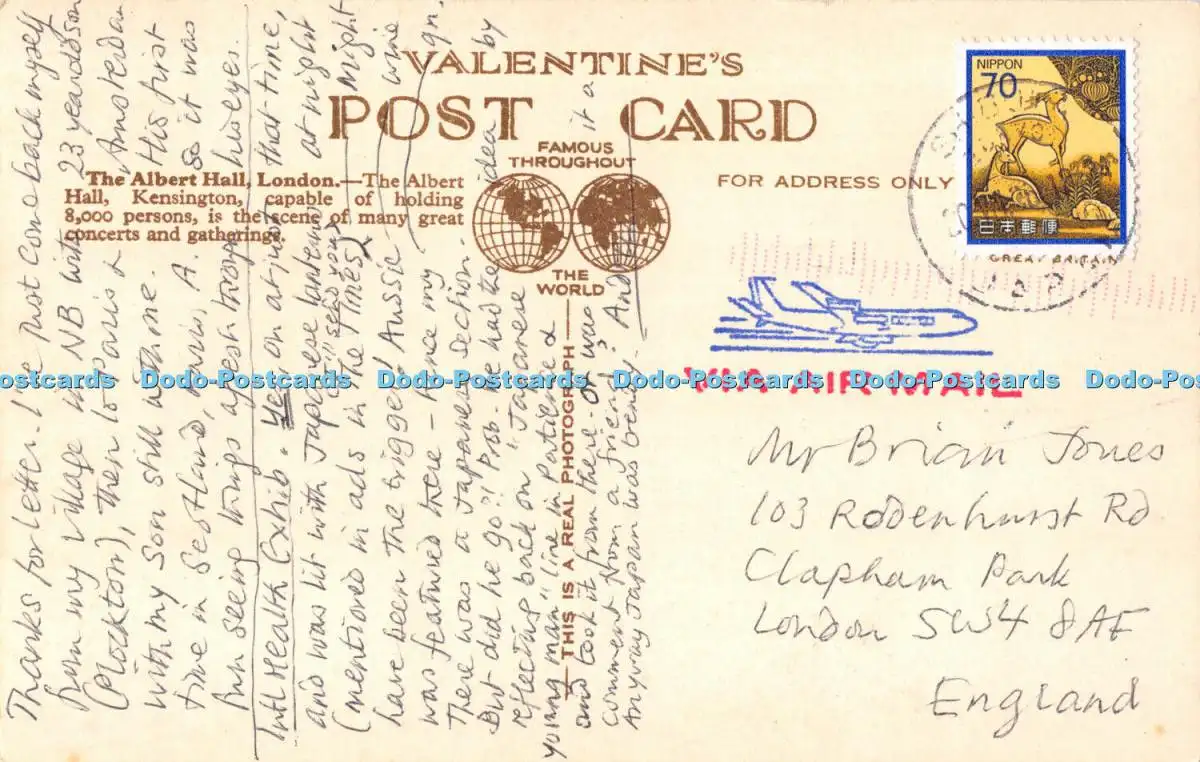 VALENTINE'S
POST CARD
FAMOUS
THROUGHOUT
THE
WORLD
The Albert Hall, London.—The Albert
Hall, Kensington, capable of holding
8,000 persons, is the scene of many great
concerts and gatherings.
FOR ADDRESS ONLY
THIS IS A REAL PHOTOGRAPH
NIPPON
70
日本郵便
GREAT BRITAIN
VIA AIR MAIL
Mr Brian Jones
103 Rodenhurst Rd
Clapham Park
London SW4 8AE
England
Thanks for letter. I've not come back myself
from my village in NB with 23 year old son
(Plockton), then to Paris & Amsterdam
with my son still with me. His first
time in so it was
fun seeing things after his eyes.
Intl Health Exhib. Yes on at just that time,
and was lit with Jap at night
(mentioned in ads in the Times) Might
have been the biggest Aussie wine
was featured here
There was a Japanese section.
But did he go? Prob. he had the idea by
reflecting back on "Japanese
young man" line in Patience &
and took it from there. Or was it a
comment from a friend? And
Anyway Japan was being
Dodo-Postcards Dodo-Postcards Dodo-Postcards Dodo-Postcards Dodo-Postcards Dodo-Postcards